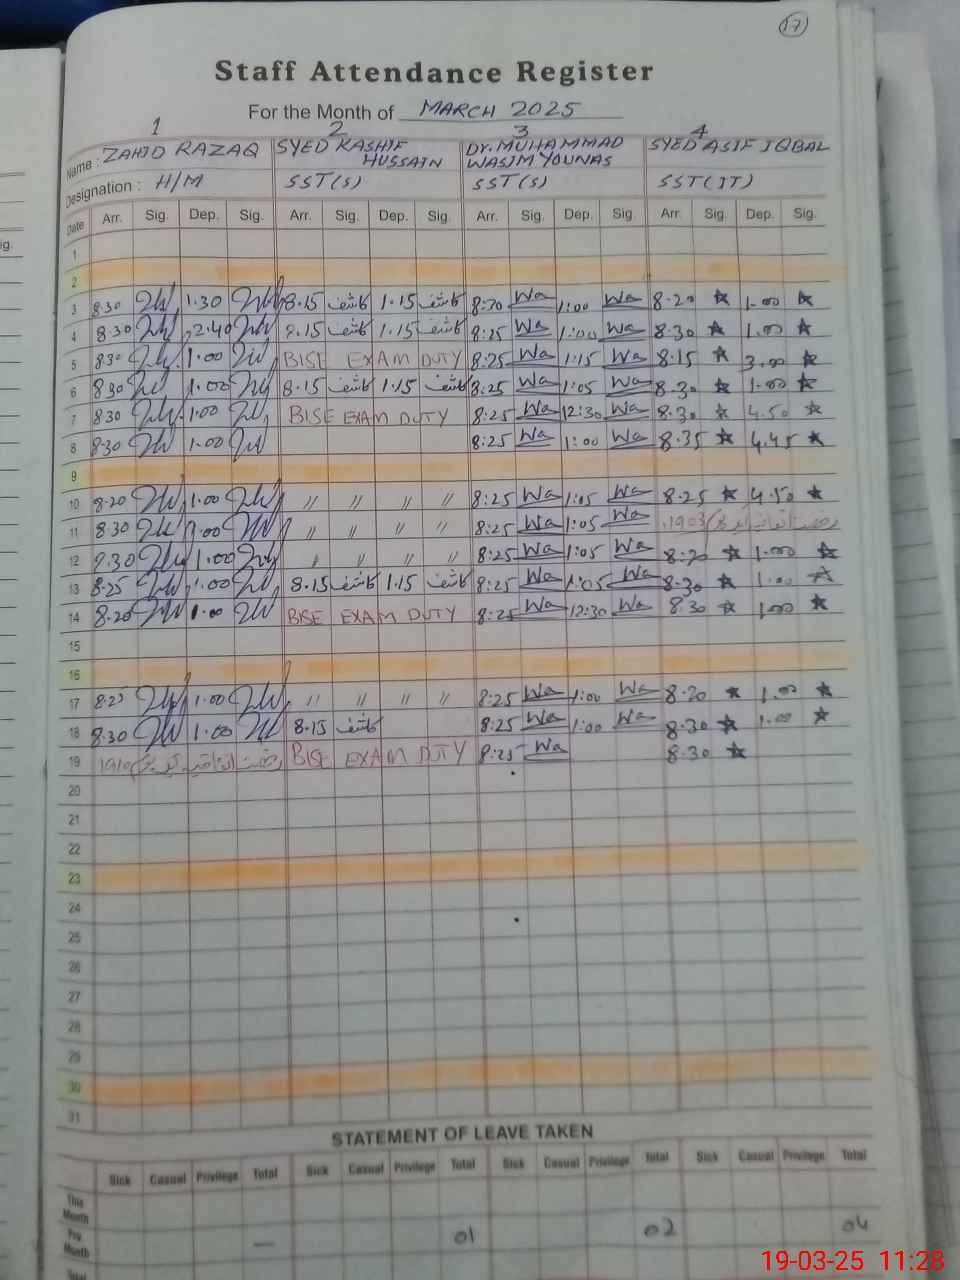 17
Staff Attendance Register
For the Month of MARCH 2025
1 2 3 4
Name : ZAHID RAZAQ SYED KASHIF HUSSAIN Dr. MUHAMMAD WASIM YOUNAS SYED ASIF IQBAL
Designation : H/M SST(S) SST(S) SST(IT)
Date Arr. Sig. Dep. Sig. Arr. Sig. Dep. Sig. Arr. Sig. Dep. Sig. Arr. Sig. Dep. Sig.
1
2
3 8.30 1.30 8.15 کاشف 1.15 کاشف 8:20 Wa 1:00 Wa 8.20 1.00
4 8.30 2.40 8.15 کاشف 1.15 کاشف 8:25 Wa 1:00 Wa 8.30 1.00
5 830 1.00 BISE EXAM DUTY 8:25 Wa 1:15 Wa 8.15 3.00
6 830 1.00 8.15 کاشف 1.15 کاشف 8:25 Wa 1:05 Wa 8.30 1.00
7 830 1.00 BISE EXAM DUTY 8:25 Wa 12:30 Wa 8.30 4.50
8 8.30 1.00 8:25 Wa 1:00 Wa 8.35 4.45
9
10 8.20 1.00 〃 〃 〃 〃 8:25 Wa 1:05 Wa 8.25 4.50
11 8.30 1.00 〃 〃 〃 〃 8:25 Wa 1:05 Wa 1903/ رخصت اتفاقیہ
12 8.30 1.00 〃 〃 〃 〃 8:25 Wa 1:05 Wa 8.20 1.00
13 8.25 1.00 8.15 کاشف 1.15 کاشف 8:25 Wa 1:05 Wa 8.30 1.00
14 8.20 1.00 BISE EXAM DUTY 8:25 Wa 12:30 Wa 8.30 1.00
15
16
17 8.25 1.00 〃 〃 〃 〃 8:25 Wa 1:00 Wa 8.20 1.00
18 8.30 1.00 8.15 کاشف 8:25 Wa 1:00 Wa 8.30 1.00
19 1910/ رخصت اتفاقیہ BISE EXAM DUTY 8:25 Wa 8.30
20
21
22
23
24
25
26
27
28
29
30
31
STATEMENT OF LEAVE TAKEN
Sick Casual Privilege Total Sick Casual Privilege Total Sick Casual Privilege Total Sick Casual Privilege Total
This Month
Pre Month — 01 02 04
Total
19-03-25 11:28